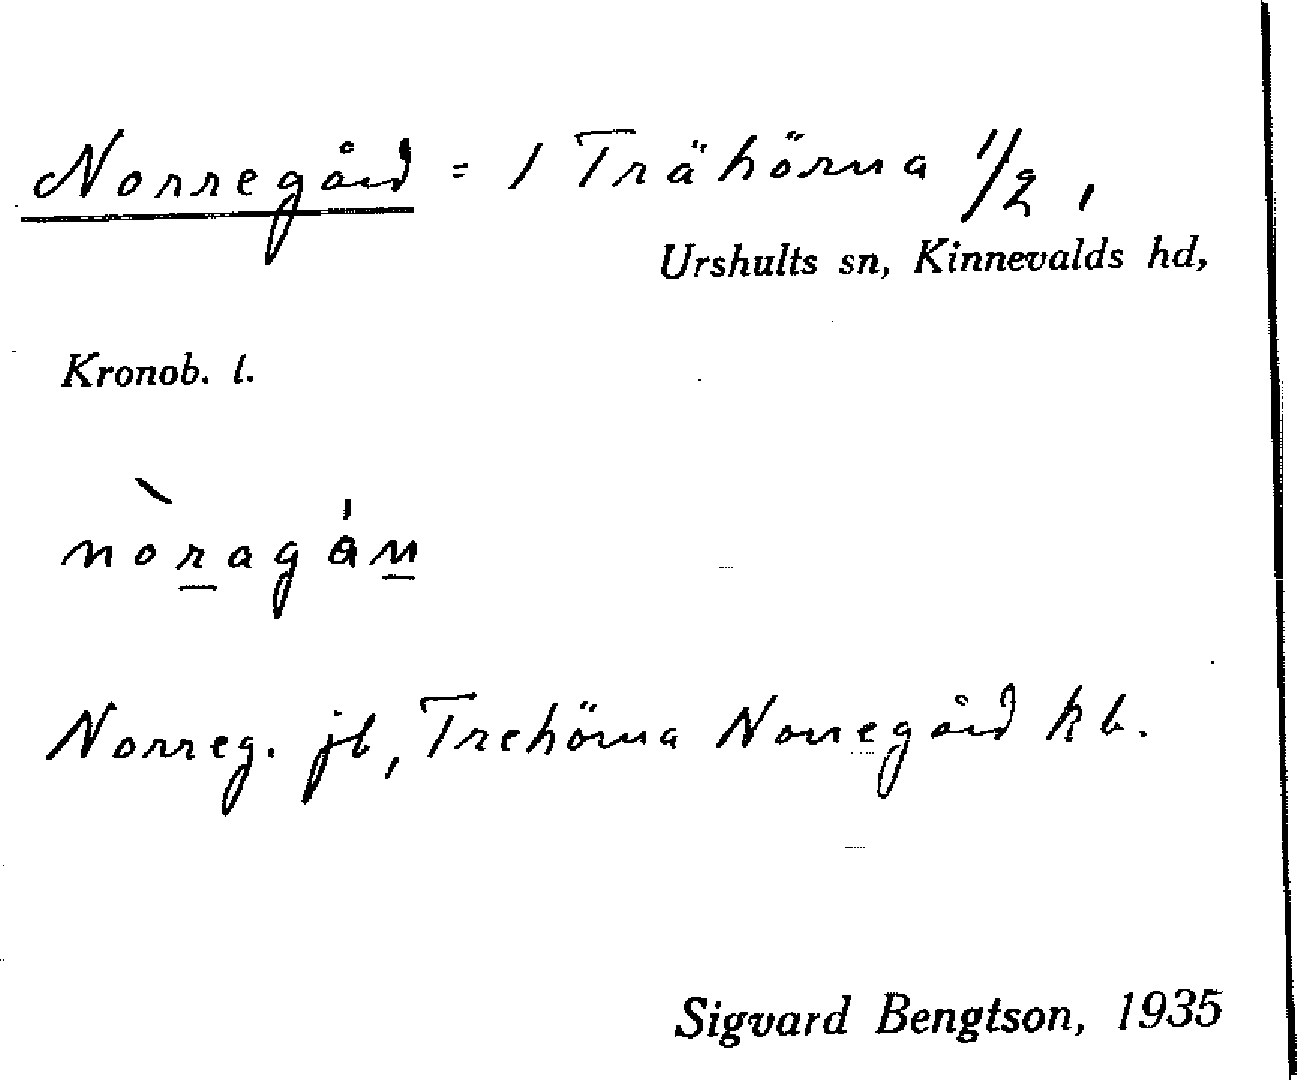 Norregård = 1 Trähörna 1/2,
Urshults sn, Kinnevalds hd,
Kronob. l.
nòragån
Norreg. jb, Trehörna Norregård kb.
Sigvard Bengtson, 1935